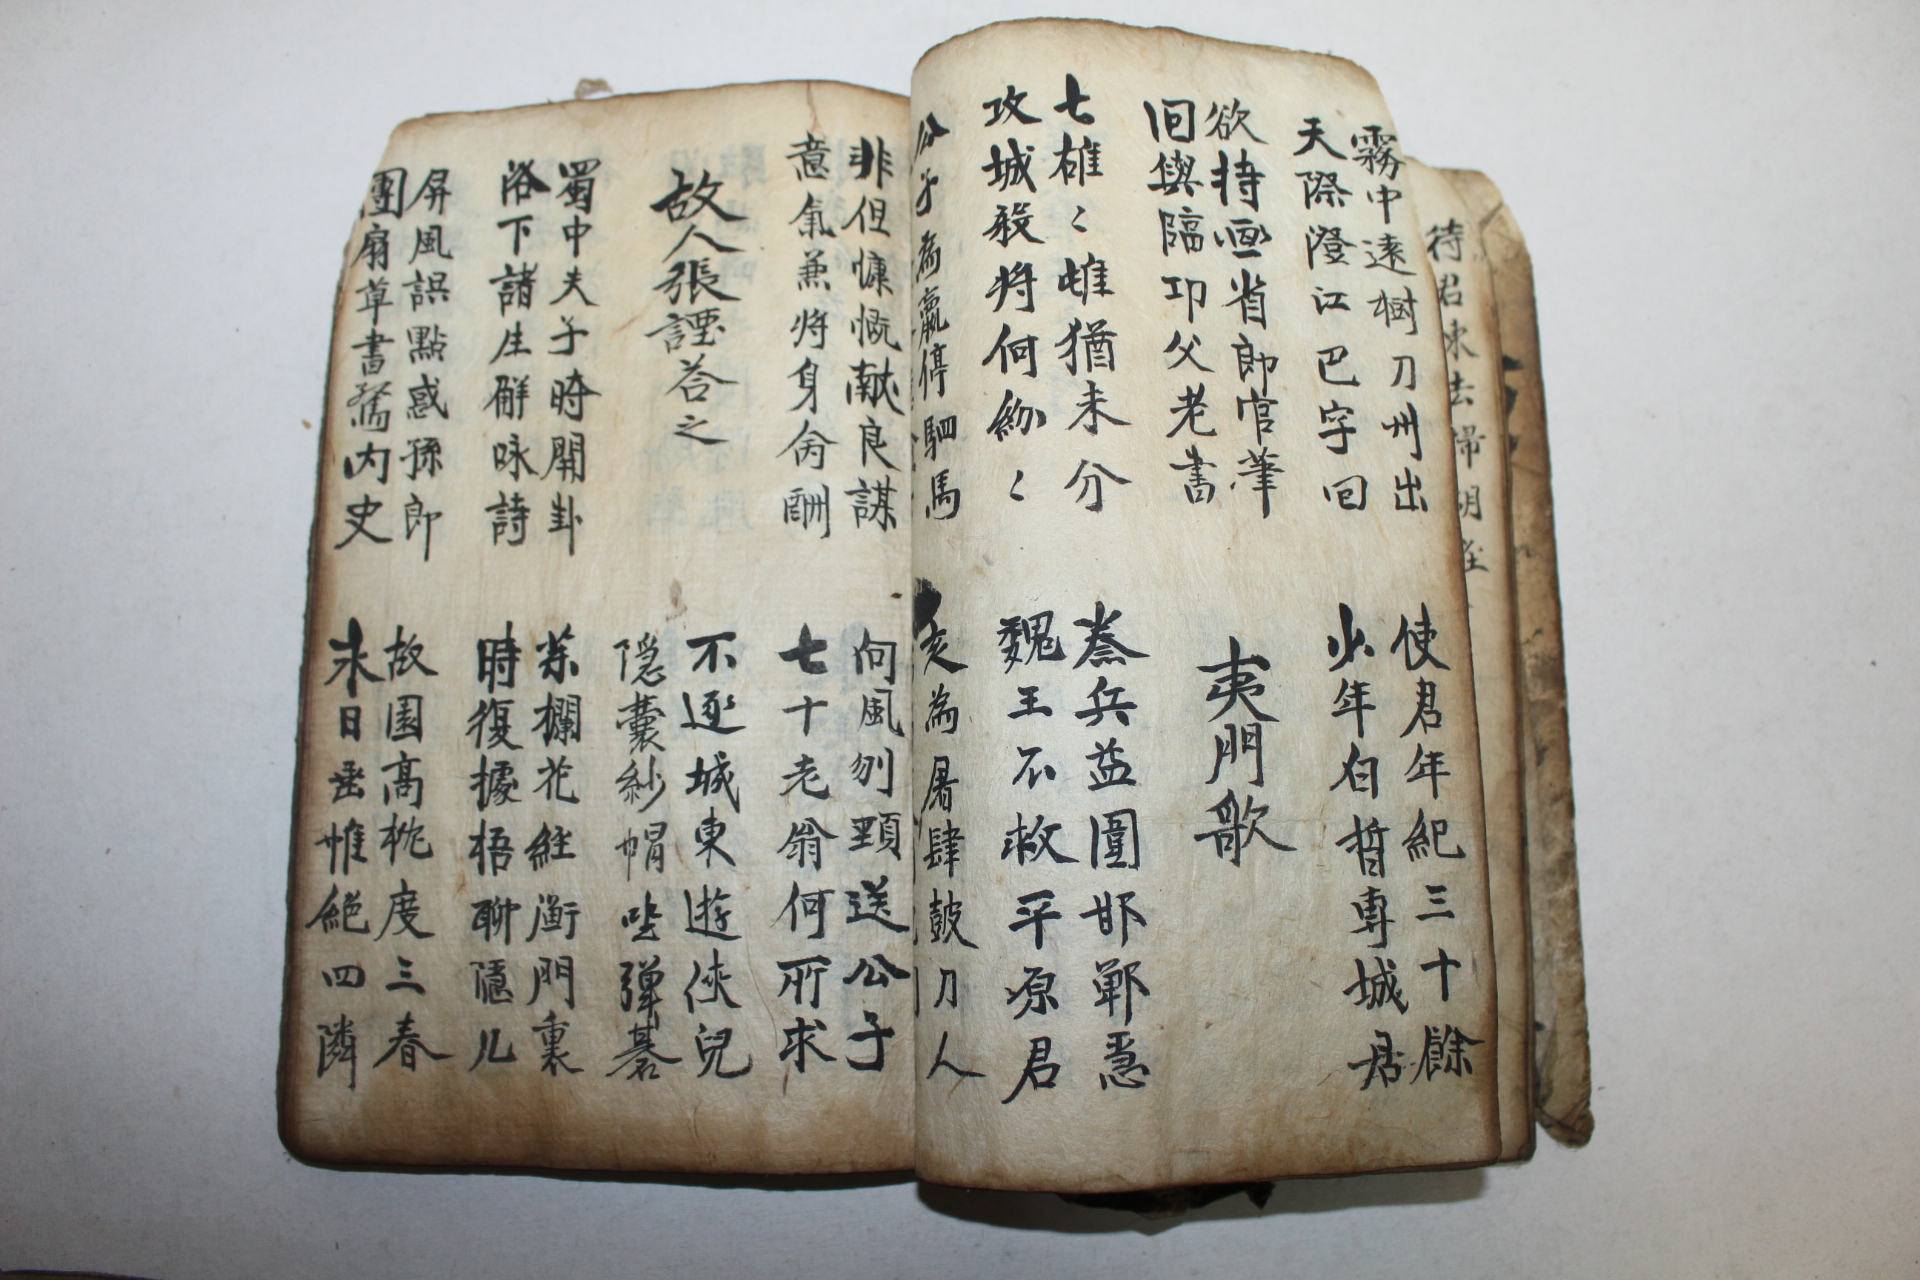 待君東去掃胡
霧中遠樹刀州出
天際澄江巴字回
使君年紀三十餘
少年白晢專城居
欲持畫省郎官筆
回與臨邛父老書
夷門歌
七雄〻雌猶未分
攻城殺將何紛〻
秦兵益圍邯鄲急
魏王不救平原君
公子為嬴停駟馬
亥為屠肆鼓刀人
非但慷慨獻良謀
意氣兼將身命酬
向風刎頸送公子
七十老翁何所求
故人張諲答之
不逐城東遊俠兒
隱囊紗帽坐彈碁
蜀中夫子時開卦
浴下諸生解咏詩
藥欄花經衡門裏
時復據梧聊隱几
屏風誤點惑孫郎
團扇草書驚內史
故園高枕度三春
永日垂帷絕四隣